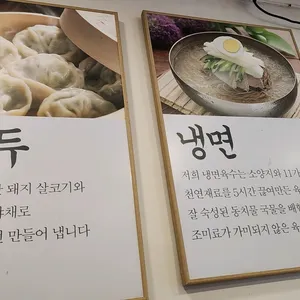 두
돼지 살코기와
야채로
만들어 냅니다
냉면
저희 냉면육수는 소양지와 11가
천연재료를 5시간 끓여만든 육
잘 숙성된 동치물 국물을 배합
조미료가 가미되지 않은 육